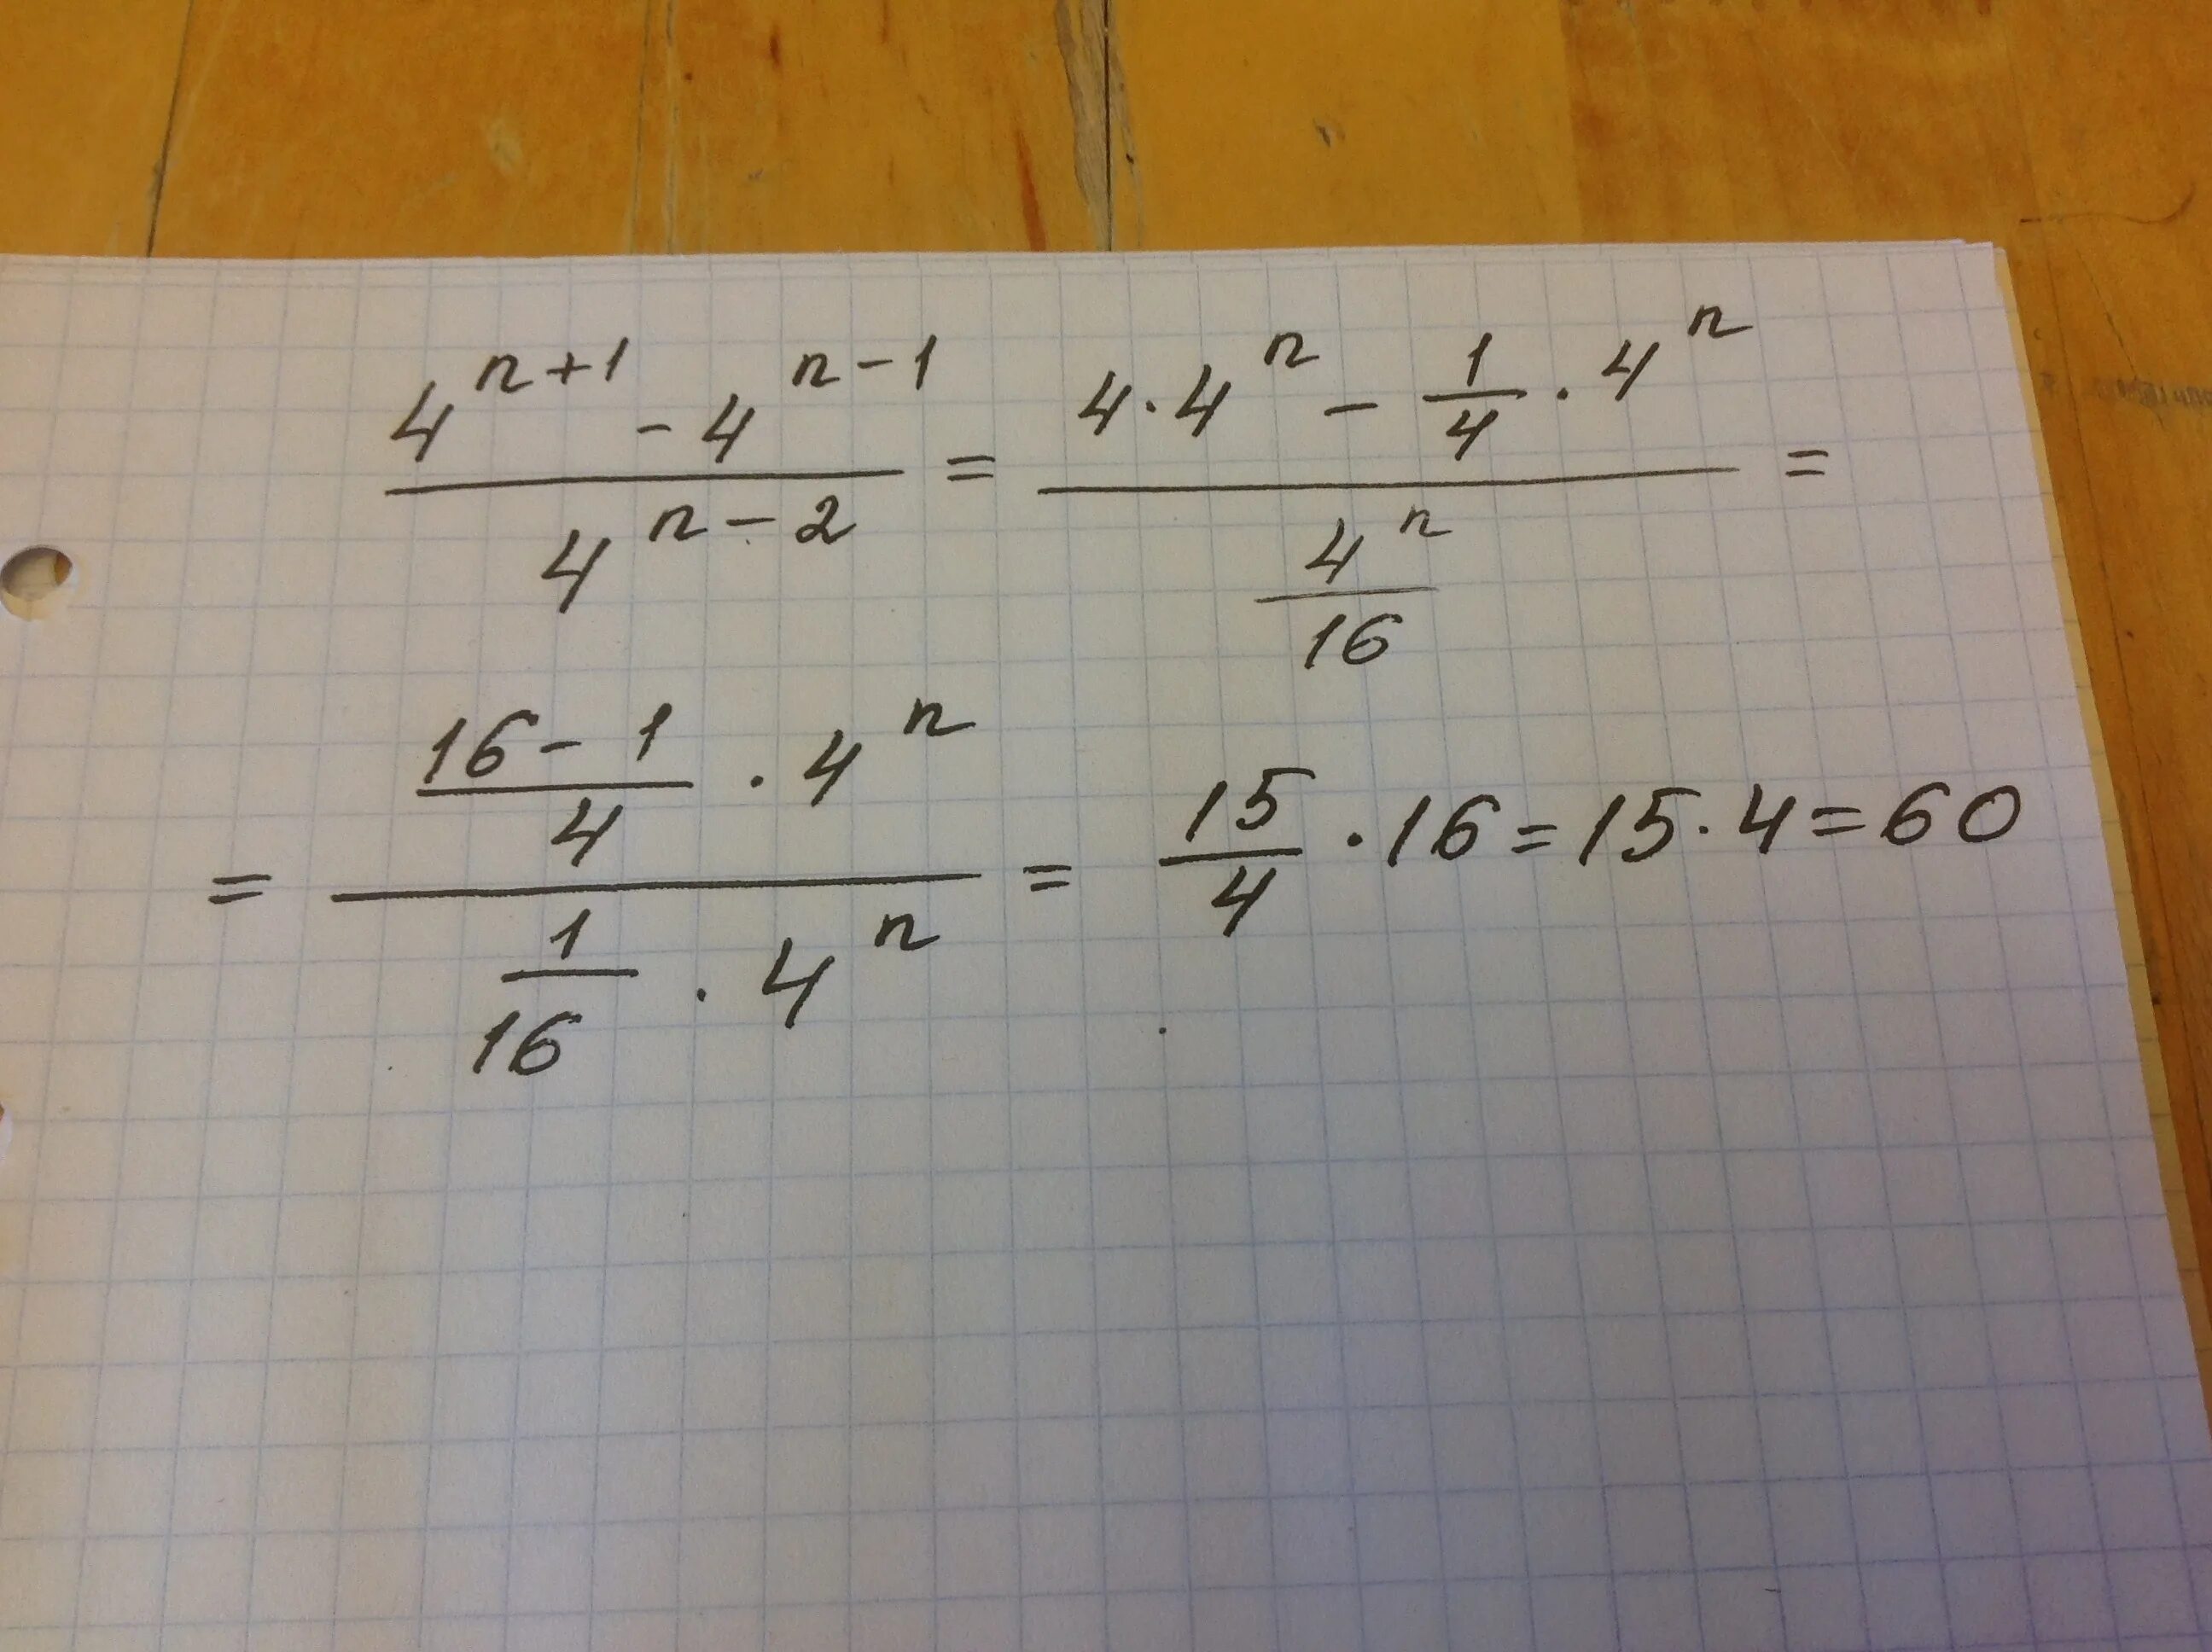 \frac{4^{n+1} - 4^{n-1}}{4^{n-2}} = \frac{4 \cdot 4^{n} - \frac{1}{4} \cdot 4^{n}}{\frac{4^{n}}{16}} =
= \frac{\frac{16-1}{4} \cdot 4^{n}}{\frac{1}{16} \cdot 4^{n}} = \frac{15}{4} \cdot 16 = 15 \cdot 4 = 60